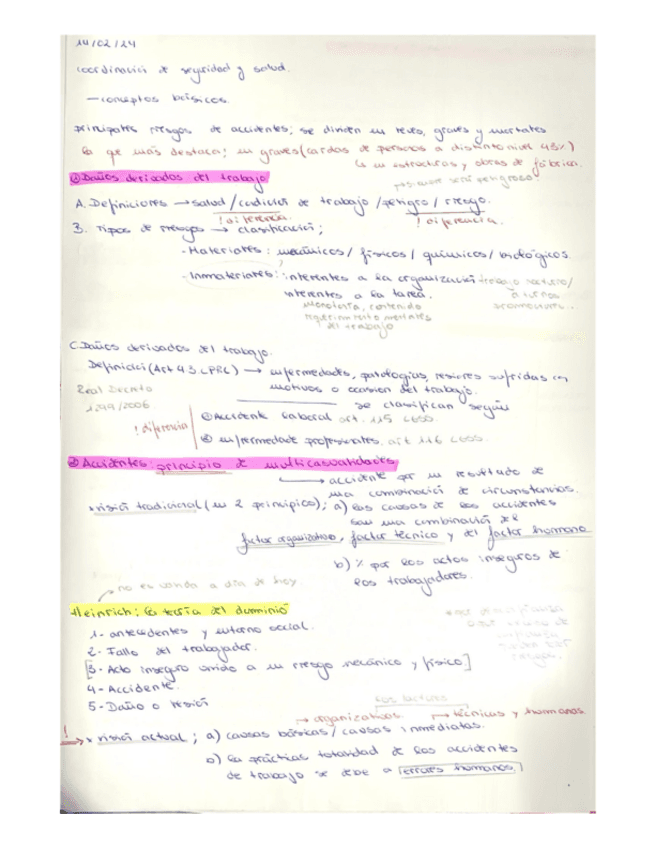 14/02/24
coordinación de seguridad y salud.
— conceptos básicos.
principales riesgos de accidentes; se dividen en leves, graves y mortales
lo que más destaca: en graves (caídas de personas a distinto nivel 43%)
↳ en estructuras y obras de fábrica.
① Daños derivados del trabajo
A. Definiciones → salud / condición de trabajo / peligro / riesgo.
! diferencia. ! diferencia.
B. Tipos de riesgos → clasificación;
- Materiales: mecánicos / físicos / químicos / biológicos.
- Inmateriales: inherentes a la organización trabajo nocturno /
inherentes a la tarea. a turnos
monotonía, contenido
requerimiento mentales
del trabajo
C. Daños derivados del trabajo.
Definición (Art 4.3. LPRL) → enfermedades, patologías, lesiones sufridas con
motivos o ocasión del trabajo.
Real Decreto
1299/2006
se clasifican según
! diferencia
① Accidente laboral art. 115 LGSS.
② enfermedade profesionales. art 116 LGSS.
② Accidentes: principio de multicasualidades
→ accidente por un resultado de
una combinación de circunstancias.
x visión tradicional (en 2 principios); a) las causas de los accidentes
son una combinación del
factor organizativo, factor técnico y del factor humano
b) % por los actos inseguros de
los trabajadores.
no es válida a día de hoy
Heinrich; la teoría del dominió
1- antecedentes y entorno social.
2- Fallo del trabajador.
[3- Acto inseguro unido a un riesgo mecánico y físico]
4- Accidente.
5- Daño o lesión
los factores
→ organizativos. → técnicas y humanas
! → x visión actual; a) causas básicas / causas inmediatas.
b) la prácticas totalidad de los accidentes
de trabajo se debe a errores humanos.